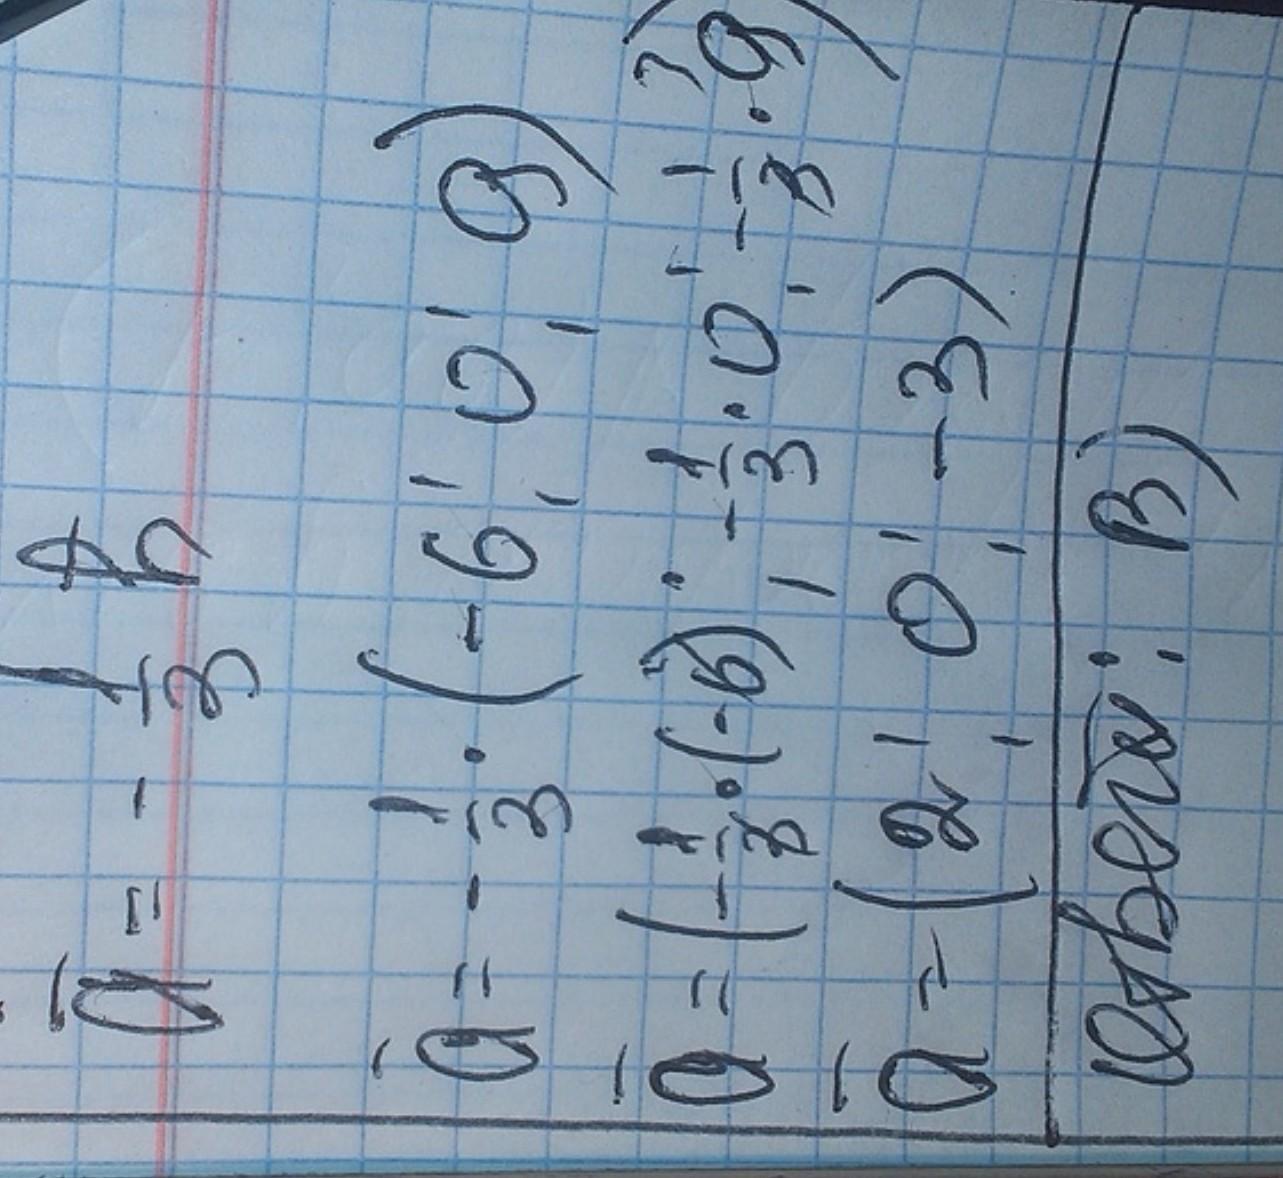 ā = - 1/3 h
ā = - 1/3 · (-6; 0; 9)
ā = (-1/3 · (-6); -1/3 · 0; -1/3 · 9)
ā = (2; 0; -3)
Ответ: В)